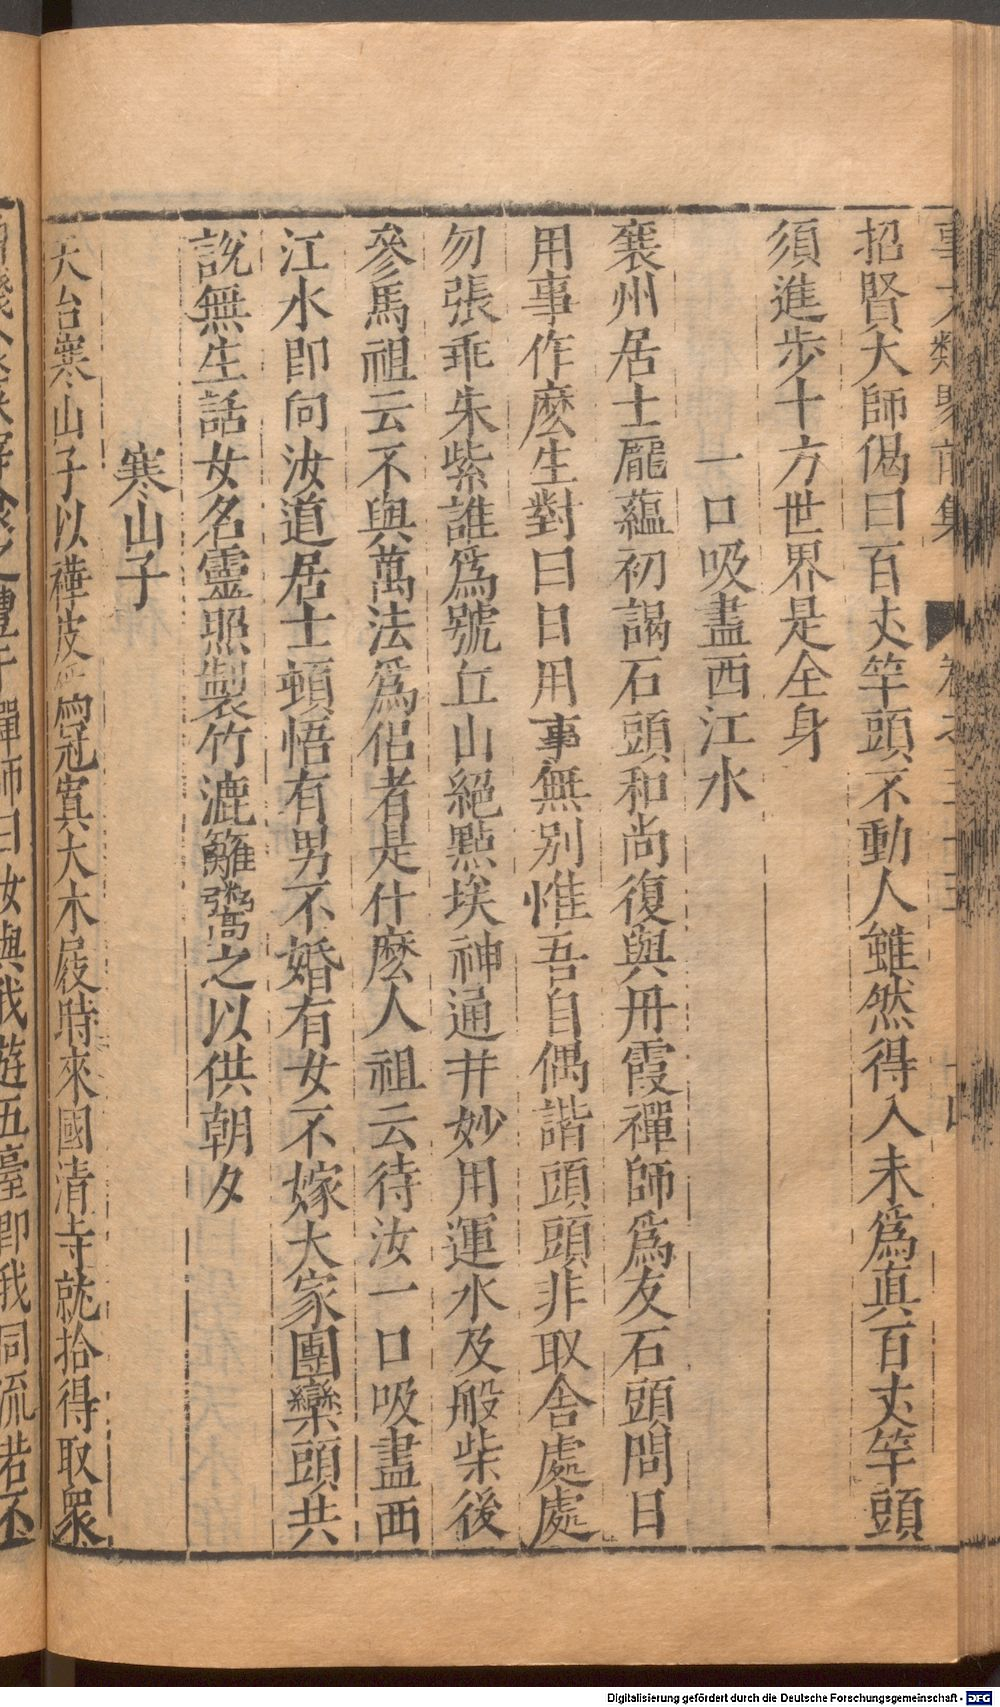 事文類聚前集 卷之三十五 十四
招賢大師偈曰百丈竿頭不動人雖然得入未爲真百丈竿頭
須進步十方世界是全身
一口吸盡西江水
襄州居士龐蘊初謁石頭和尚復與丹霞禪師爲友石頭問日
用事作麼生對曰日用事無別惟吾自偶諧頭頭非取舍處處
勿張乖朱紫誰爲號丘山絕點埃神通并妙用運水及般柴後
參馬祖云不與萬法爲侶者是什麼人祖云待汝一口吸盡西
江水即向汝道居士頓悟有男不婚有女不嫁大家團欒頭共
說無生話女名靈照製竹漉籬鬻之以供朝夕
寒山子
天台寒山子以樺皮爲冠寞大木屐時來國清寺就拾得取衆
之豐干禪師曰汝與我遊五臺即我同流若不
Digitalisierung gefördert durch die Deutsche Forschungsgemeinschaft - DFG